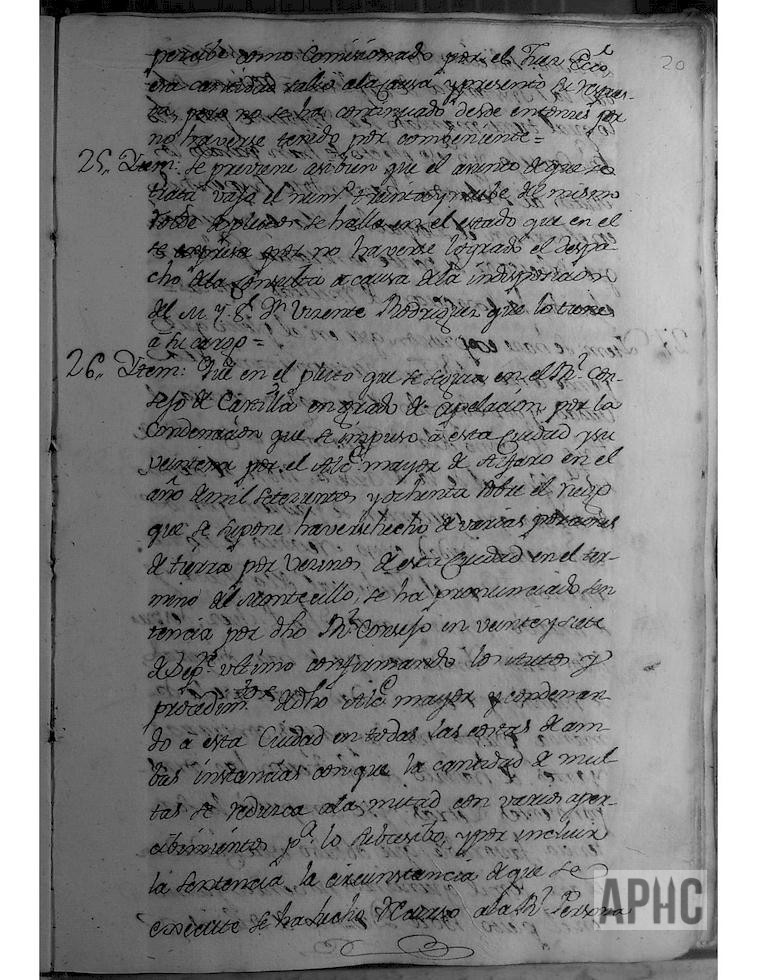 20
percibe como Comisionado por el Juez Ecco
esta cantidad salio ala Causa y presento su respues-
ta, pero no se ha continuado desde entonces por
no haverse tenido por combeniente=
25,, Ytem: Se previene asi bien que el asunto de que se
trata vajo el num.º treinta y nuebe del mismo
se halla en el estado que en el
se expresa por no haverse logrado el Despa-
cho dela consulta a causa dela indisposicion
del M. Y. S.r D.n Vizente Rodriguez que lo tiene
a su cargo=
26,, Ytem: Que en el pleito que se seguia en el R.l Con-
sejo de Castilla en grado de Apelacion por la
Condenacion que se impuso á esta Ciudad y su
veintena por el Alc.e mayor de Alfaro en el
año de mil Setezientos y ochenta sobre el
que se supone haverse hecho de varias porciones
de tierra por vezinos de esta Ciudad en el ter-
meno del Montecillo, se ha pronunciado sen
tencia por dho R.l Consejo en veinte y siete
de Sep.e ultimo confirmando los Autos y
procedim.tos de dho Alc.e mayor y condenan-
do á esta Ciudad en todas las costas de am-
bas instancias con que la cantidad de mul
tas se reduzca ala mitad con varios aper-
cibimientos p.a lo subcesibo, y por incluir
la Sentencia la circunstancia de que se
execute se ha hecho Recurso ala R.l Persona
APHC